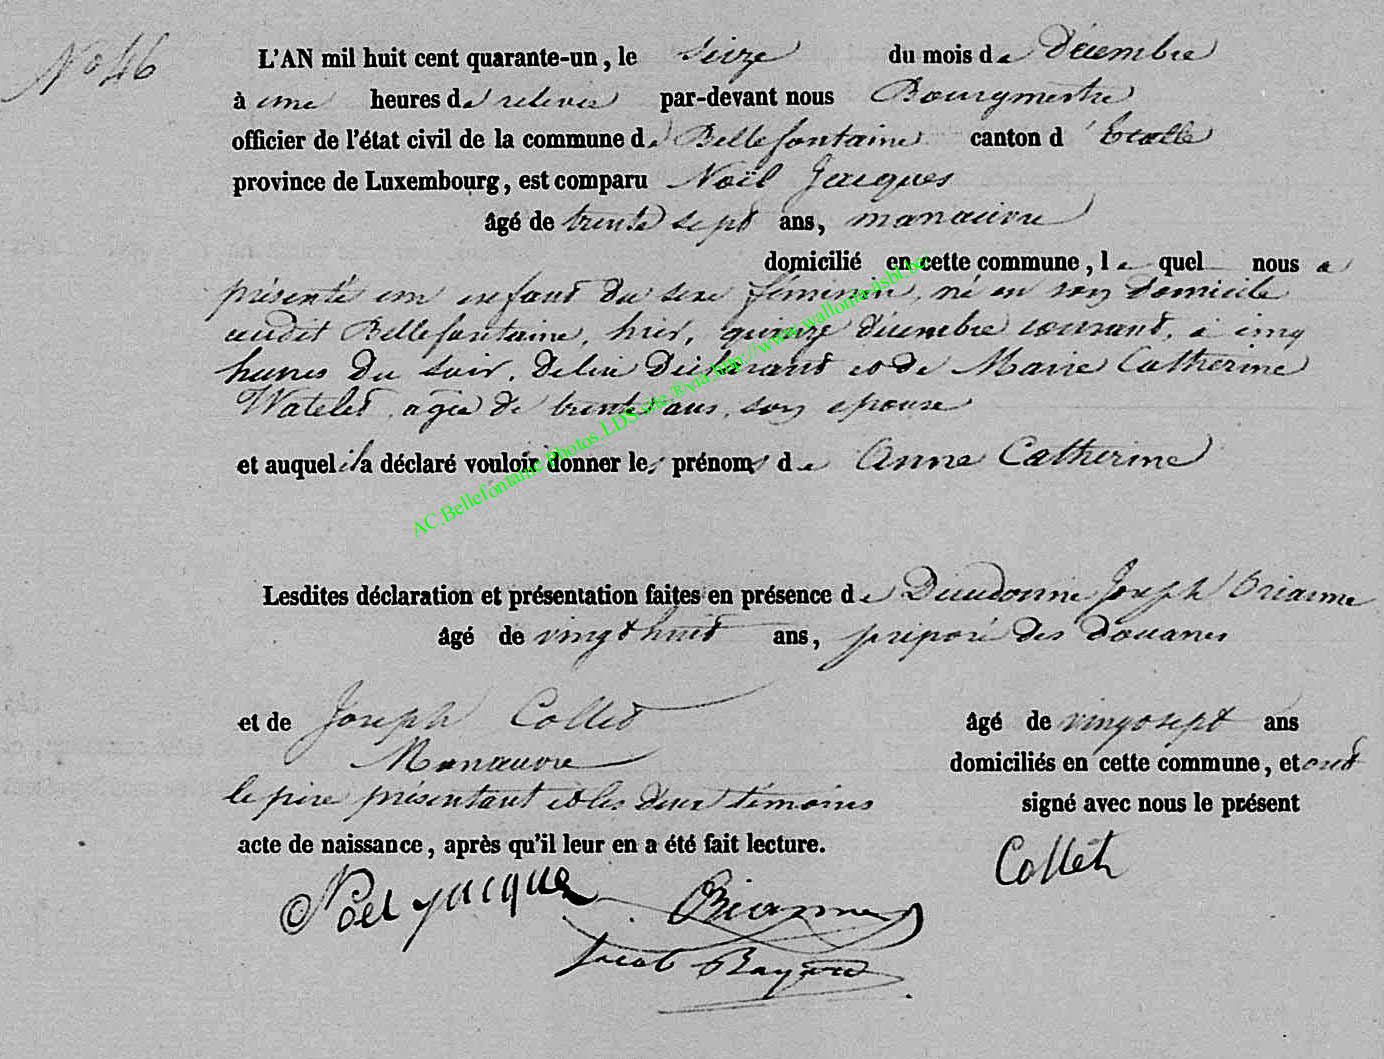 N° 46
L'AN mil huit cent quarante-un, le seize du mois de Décembre
à une heures de relevée par-devant nous Bourgmestre
officier de l'état civil de la commune de Bellefontaine canton d' Etalle
province de Luxembourg, est comparu Noël Jacques
âgé de trente sept ans, manœuvre
domicilié en cette commune, le quel nous a
présenté un enfant du sexe féminin, né en son domicile
audit Bellefontaine, hier, quinze décembre courant, à cinq
heures du soir, de lui déclarant et de Marie Catherine
Watelet, agée de trente ans, son épouse
et auquel il a déclaré vouloir donner les prénoms de Anne Catherine
AC.Bellefontaine Photos.LDS site R via http://www.wallonia-asbl.be
Lesdites déclaration et présentation faites en présence de Dieudonné Joseph Brianne
âgé de vingt huit ans, préposé des douanes
et de Joseph Collet âgé de vingt sept ans
Manœuvre domiciliés en cette commune, et ont
le père présentant et les deux témoins signé avec nous le présent
acte de naissance, après qu'il leur en a été fait lecture.
Collet
Noel jacque Brianne
Jacob Bayard